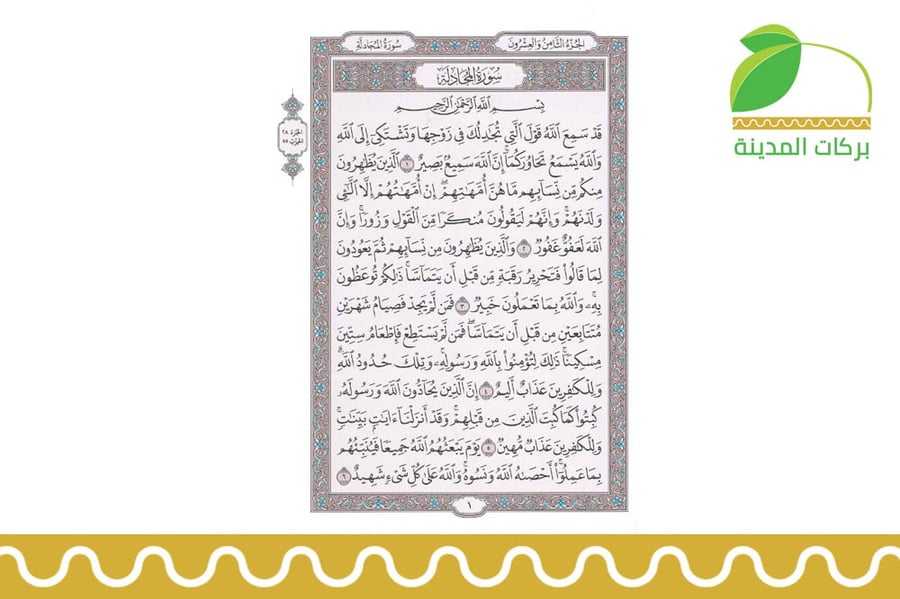 الجزء الثامن والعشرون
سورة المجادلة
سُورَةُ المُجَادلَة
بِسْمِ اللَّهِ الرَّحْمَٰنِ الرَّحِيمِ
قَدْ سَمِعَ اللَّهُ قَوْلَ الَّتِي تُجَادِلُكَ فِي زَوْجِهَا وَتَشْتَكِي إِلَى اللَّهِ
وَاللَّهُ يَسْمَعُ تَحَاوُرَكُمَا إِنَّ اللَّهَ سَمِيعٌ بَصِيرٌ ١ الَّذِينَ يُظَاهِرُونَ
مِنكُم مِّن نِّسَائِهِم مَّا هُنَّ أُمَّهَاتِهِمْ إِنْ أُمَّهَاتُهُمْ إِلَّا اللَّائِي
وَلَدْنَهُمْ وَإِنَّهُمْ لَيَقُولُونَ مُنكَرًا مِّنَ الْقَوْلِ وَزُورًا وَإِنَّ
اللَّهَ لَعَفُوٌّ غَفُورٌ ٢ وَالَّذِينَ يُظَاهِرُونَ مِن نِّسَائِهِمْ ثُمَّ يَعُودُونَ
لِمَا قَالُوا فَتَحْرِيرُ رَقَبَةٍ مِّن قَبْلِ أَن يَتَمَاسَّا ذَٰلِكُمْ تُوعَظُونَ
بِهِ وَاللَّهُ بِمَا تَعْمَلُونَ خَبِيرٌ ٣ فَمَن لَّمْ يَجِدْ فَصِيَامُ شَهْرَيْنِ
مُتَتَابِعَيْنِ مِن قَبْلِ أَن يَتَمَاسَّا فَمَن لَّمْ يَسْتَطِعْ فَإِطْعَامُ سِتِّينَ
مِسْكِينًا ذَٰلِكَ لِتُؤْمِنُوا بِاللَّهِ وَرَسُولِهِ وَتِلْكَ حُدُودُ اللَّهِ
وَلِلْكَافِرِينَ عَذَابٌ أَلِيمٌ ٤ إِنَّ الَّذِينَ يُحَادُّونَ اللَّهَ وَرَسُولَهُ
كُبِتُوا كَمَا كُبِتَ الَّذِينَ مِن قَبْلِهِمْ وَقَدْ أَنزَلْنَا آيَاتٍ بَيِّنَاتٍ
وَلِلْكَافِرِينَ عَذَابٌ مُّهِينٌ ٥ يَوْمَ يَبْعَثُهُمُ اللَّهُ جَمِيعًا فَيُنَبِّئُهُم
بِمَا عَمِلُوا أَحْصَاهُ اللَّهُ وَنَسُوهُ وَاللَّهُ عَلَىٰ كُلِّ شَيْءٍ شَهِيدٌ ٦
١
الجزء ٢٨
الحزب ٥٥
بركات المدينة